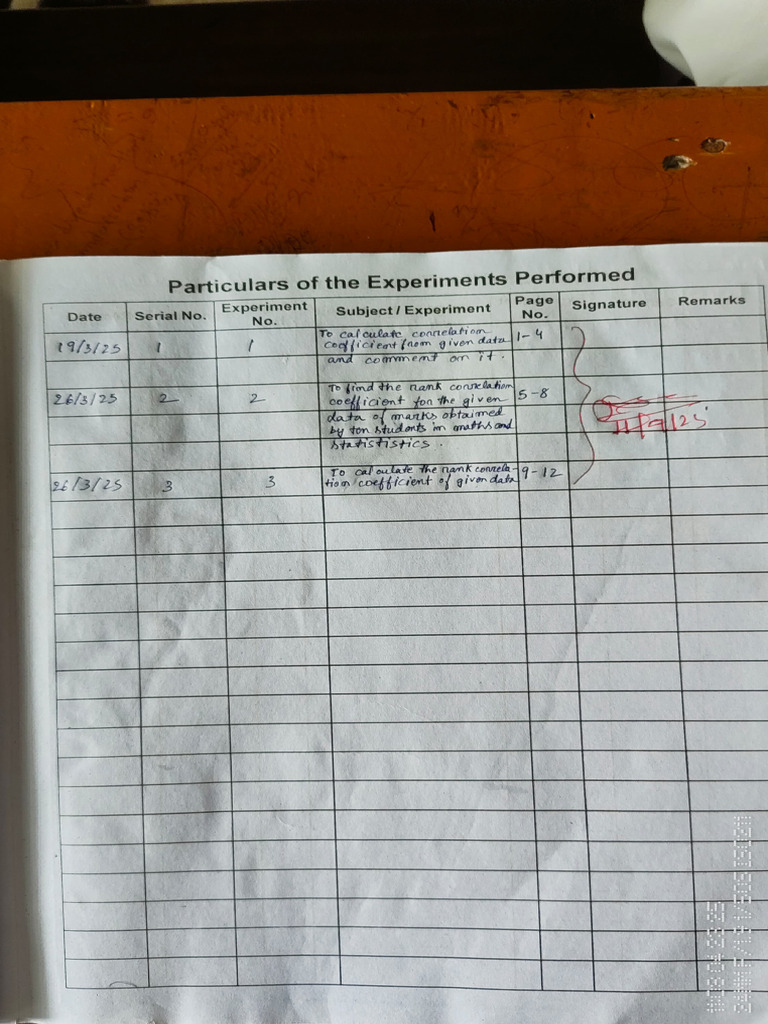 Particulars of the Experiments Performed
Date Serial No. Experiment No. Subject / Experiment Page No. Signature Remarks
19/3/25 1 1 To calculate correlation 1-4
coefficient from given data
and comment on it.
26/3/25 2 2 To find the rank correlation 5-8
coefficient for the given
data of marks obtained
by ten students in maths and
statististics.
26/3/25 3 3 To calculate the rank correla- 9-12
tion coefficient of given data